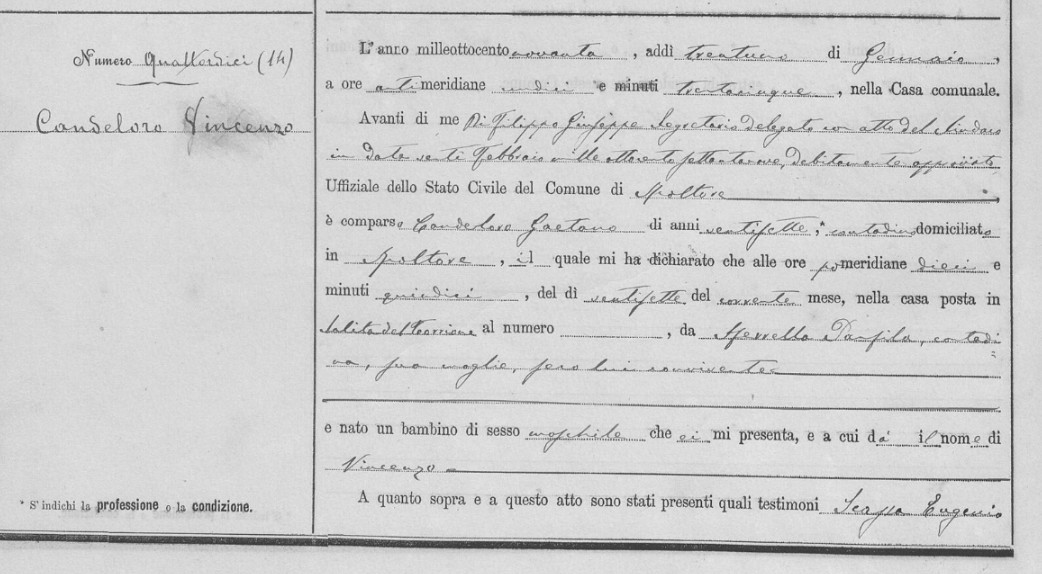 Numero Quattordici (14)
Candeloro Vincenzo
* S'indichi la professione o la condizione.
L'anno milleottocento novanta, addì trentuno di Gennaio,
a ore antimeridiane undici e minuti trentacinque, nella Casa comunale.
Avanti di me Di Filippo Giuseppe Segretario delegato con atto del Sindaco
in data venti Febbraio mille ottocento settantanove, debitamente approvato
Uffiziale dello Stato Civile del Comune di Spoltore,
è comparso Candeloro Gaetano di anni ventisette,* contadino domiciliato
in Spoltore, il quale mi ha dichiarato che alle ore pomeridiane dieci e
minuti quindici, del dì ventisette del corrente mese, nella casa posta in
Salita del Torrione al numero , da Sferrella Panfila, contadi
na, sua moglie, seco lui convivente
è nato un bambino di sesso maschile che ei mi presenta, e a cui dà il nome di
Vincenzo
A quanto sopra e a questo atto sono stati presenti quali testimoni Eugenio